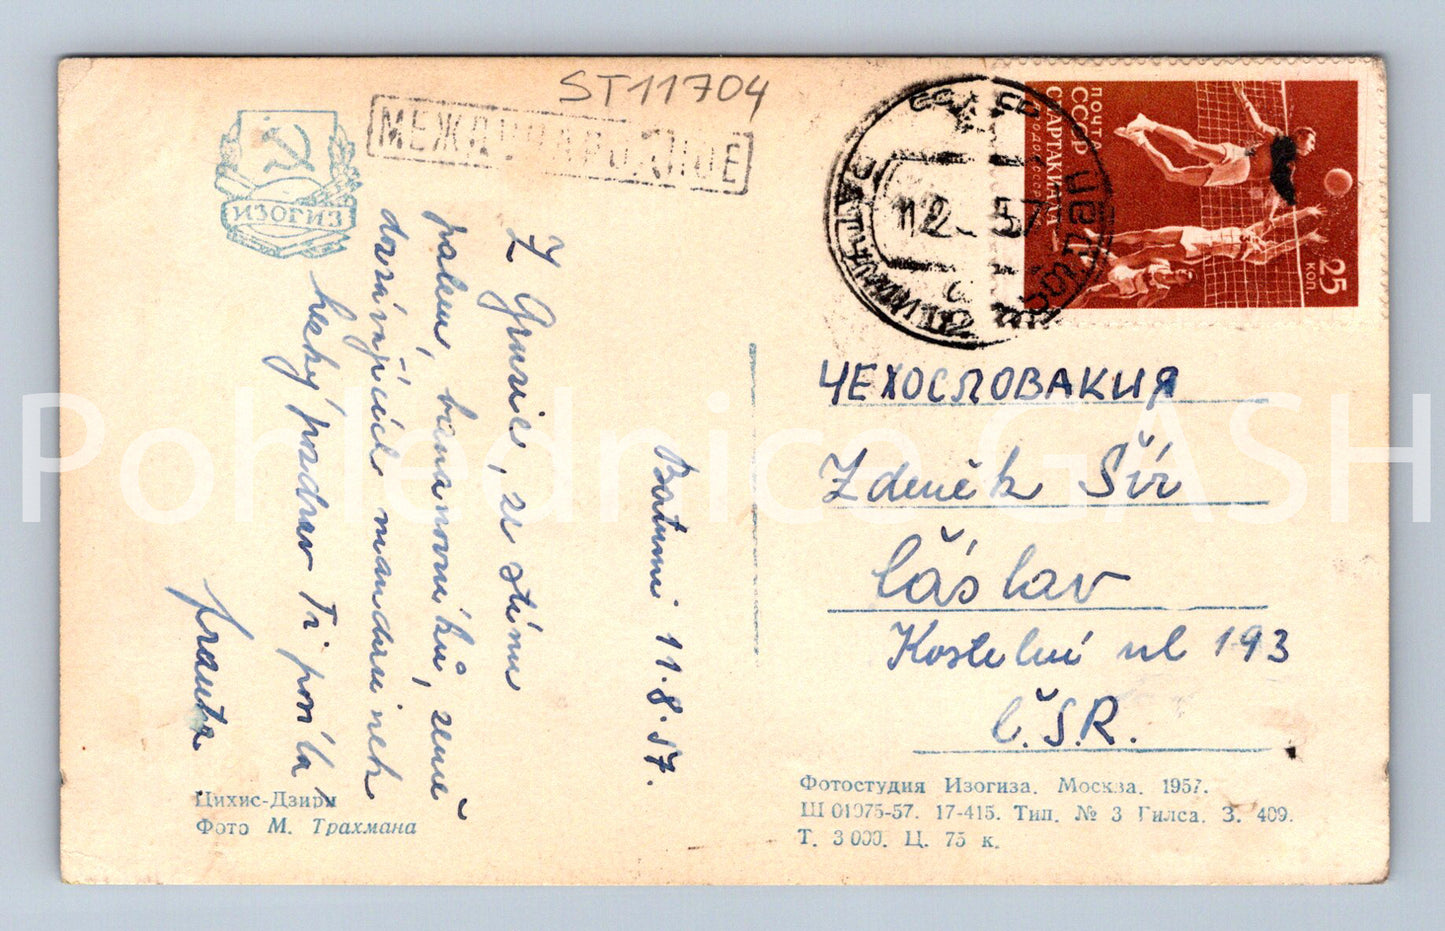 ST11704
МЕЖДУНАРОДНОЕ
ИЗОГИЗ
ПОЧТА
СССР
СПАРТАКИАДА
25
КОП.
12 57
Batumi 11.8.57.
Z Gruzie, ze stínu
palem, banánovníků, země
dozrávajících mandarinek
hezký pozdrav Ti posílá
Franta
ЧЕХОСЛОВАКИЯ
Zdeněk Šír
Čáslav
Kostelní ul 193
Č.S.R.
Цихис-Дзири
Фото М. Трахмана
Фотостудия Изогиза. Москва. 1957.
Ш 01975-57. 17-415. Тип. № 3 Гилса. З. 409.
Т. 3 000. Ц. 75 к.
Pohlednice GASH